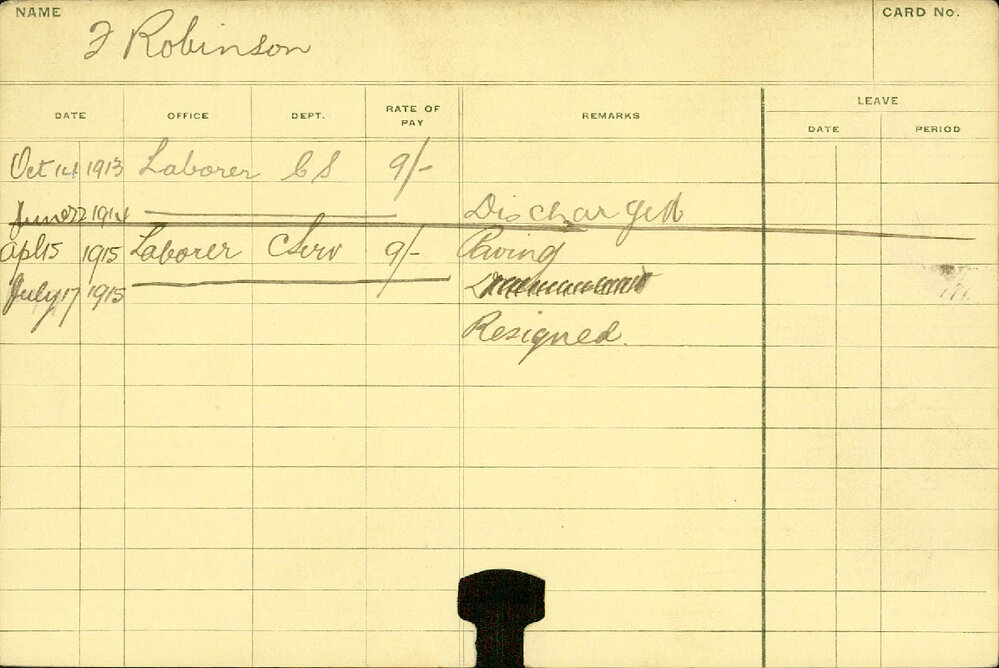 NAME
CARD No.
F Robinson
DATE OFFICE DEPT. RATE OF PAY REMARKS LEAVE
DATE PERIOD
Oct 14 1913 Laborer CS 9/-
June 22 1914 Discharged
Apl 15 1915 Laborer C Serv 9/- Paving
July 17 1915
Resigned.